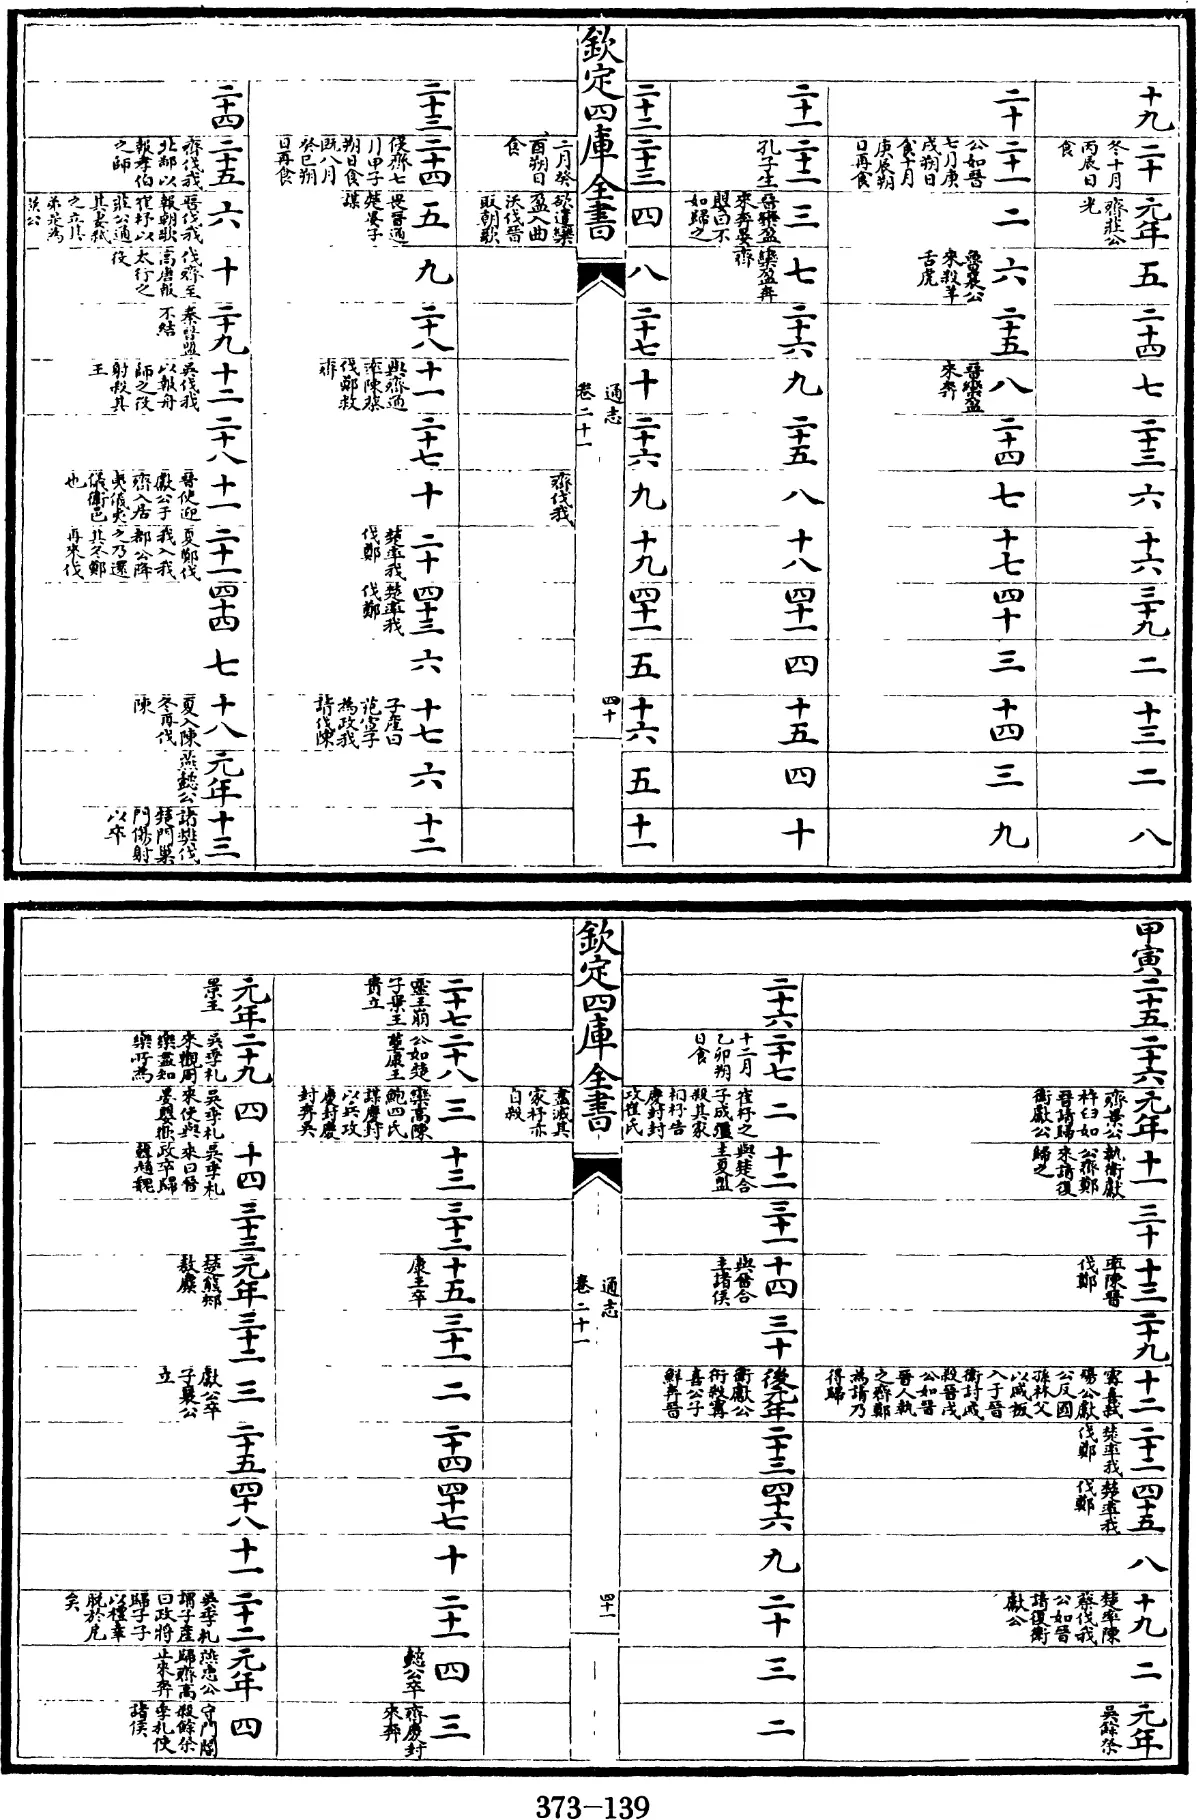 欽定四庫全書
通志
卷二十一
四十
十九
二十 冬十月丙辰日食
元年 齊莊公光
五
二十四
七
二十三
六
十六
三十九
二
十三
二
八
二十
二十一 公如晉七月庚戌朔日食十月庚辰朔日再食
二
六 魯襄公來殺羊舌虎
二十五
八 晉欒盈來奔
二十四
七
十七
四十
三
十四
三
九
二十一
二十二 孔子生
三 晉欒盈來奔晏嬰曰不如歸之
七 欒盈奔齊
二十六
九
二十五
八
十八
四十一
四
十五
四
十
二十二
二十三 二月癸酉朔日食
四 欲遣欒盈入曲沃伐晉取朝歌
八
二十七
十
二十六
九 齊伐我
十九
四十二
五
十六
五
十一
二十三
二十四 侵齊七月甲子朔日食既八月癸巳朔日再食
五 畏晉通楚晏子謀
九
二十八
十一 與齊通率陳蔡伐鄭救齊
二十七
十
二十 楚率我伐鄭
四十三 楚率我伐鄭
六
十七 子產曰范宣子為政我請伐陳
六
十二
二十四
二十五 齊伐我北鄙以報孝伯之師
六 晉伐我報朝歌崔杼以莊公通其妻弒之立其弟是為景公
十 伐齊至高唐報太行之役
二十九 秦晉盟不結
十二 吳伐我以報舟師之役射殺其王
二十八
十一 晉使迎獻公于齊入居夷儀夷儀衛邑也
二十一 夏鄭伐我入我郡公降之乃還其冬鄭再來伐
四十四
七
十八 夏入陳冬再伐陳
元年 燕懿公
十三 諸樊伐楚門巢門傷射以卒
欽定四庫全書
通志
卷二十一
四十一
甲寅
二十五
二十六
元年 齊景公杵臼如晉請歸衛獻公
十一 執衛獻公齊鄭來請復歸之
三十
十三 率陳晉伐鄭
二十九
十二 甯喜弒殤公獻公反國孫林父以戚叛入于晉衛討戚殺晉戍公如晉晉人執之齊鄭為請乃得歸
二十二 楚率我伐鄭
四十五 楚率我伐鄭
八
十九 楚率陳蔡伐我公如晉請復衛獻公
二
元年 吳餘祭
二十六
二十七 十二月乙卯朔日食
二 崔杼之子成彊殺其家相杼告慶封封攻崔氏盡滅其家杼亦自殺
十二 與楚合主夏盟
三十一
十四 與晉合主諸侯
三十
後元年 衛獻公衎殺甯喜公子鮮奔晉
二十三
四十六
九
二十
三
二
二十七 靈王崩子景王貴立
二十八 公如楚葬康王
三 欒高陳鮑四氏謀慶封以兵攻慶封慶封奔吳
十三
三十二
十五 康王卒
三十一
二
二十四
四十七
十
二十一
四 懿公卒
三 齊慶封來奔
元年 景王
二十九 吳季札來觀周樂盡知樂所為
四 吳季札來使與晏嬰歡
十四 吳季札來曰晉政卒歸韓趙魏
三十三
元年 楚熊郟敖麇
三十二
三 獻公卒子襄公立
二十五
四十八
十一
二十二 吳季札謂子產曰政將歸子子以禮幸脫於戹矣
元年 燕惠公歸齊高止來奔
四 守門閽殺餘祭季札使諸侯
373—139